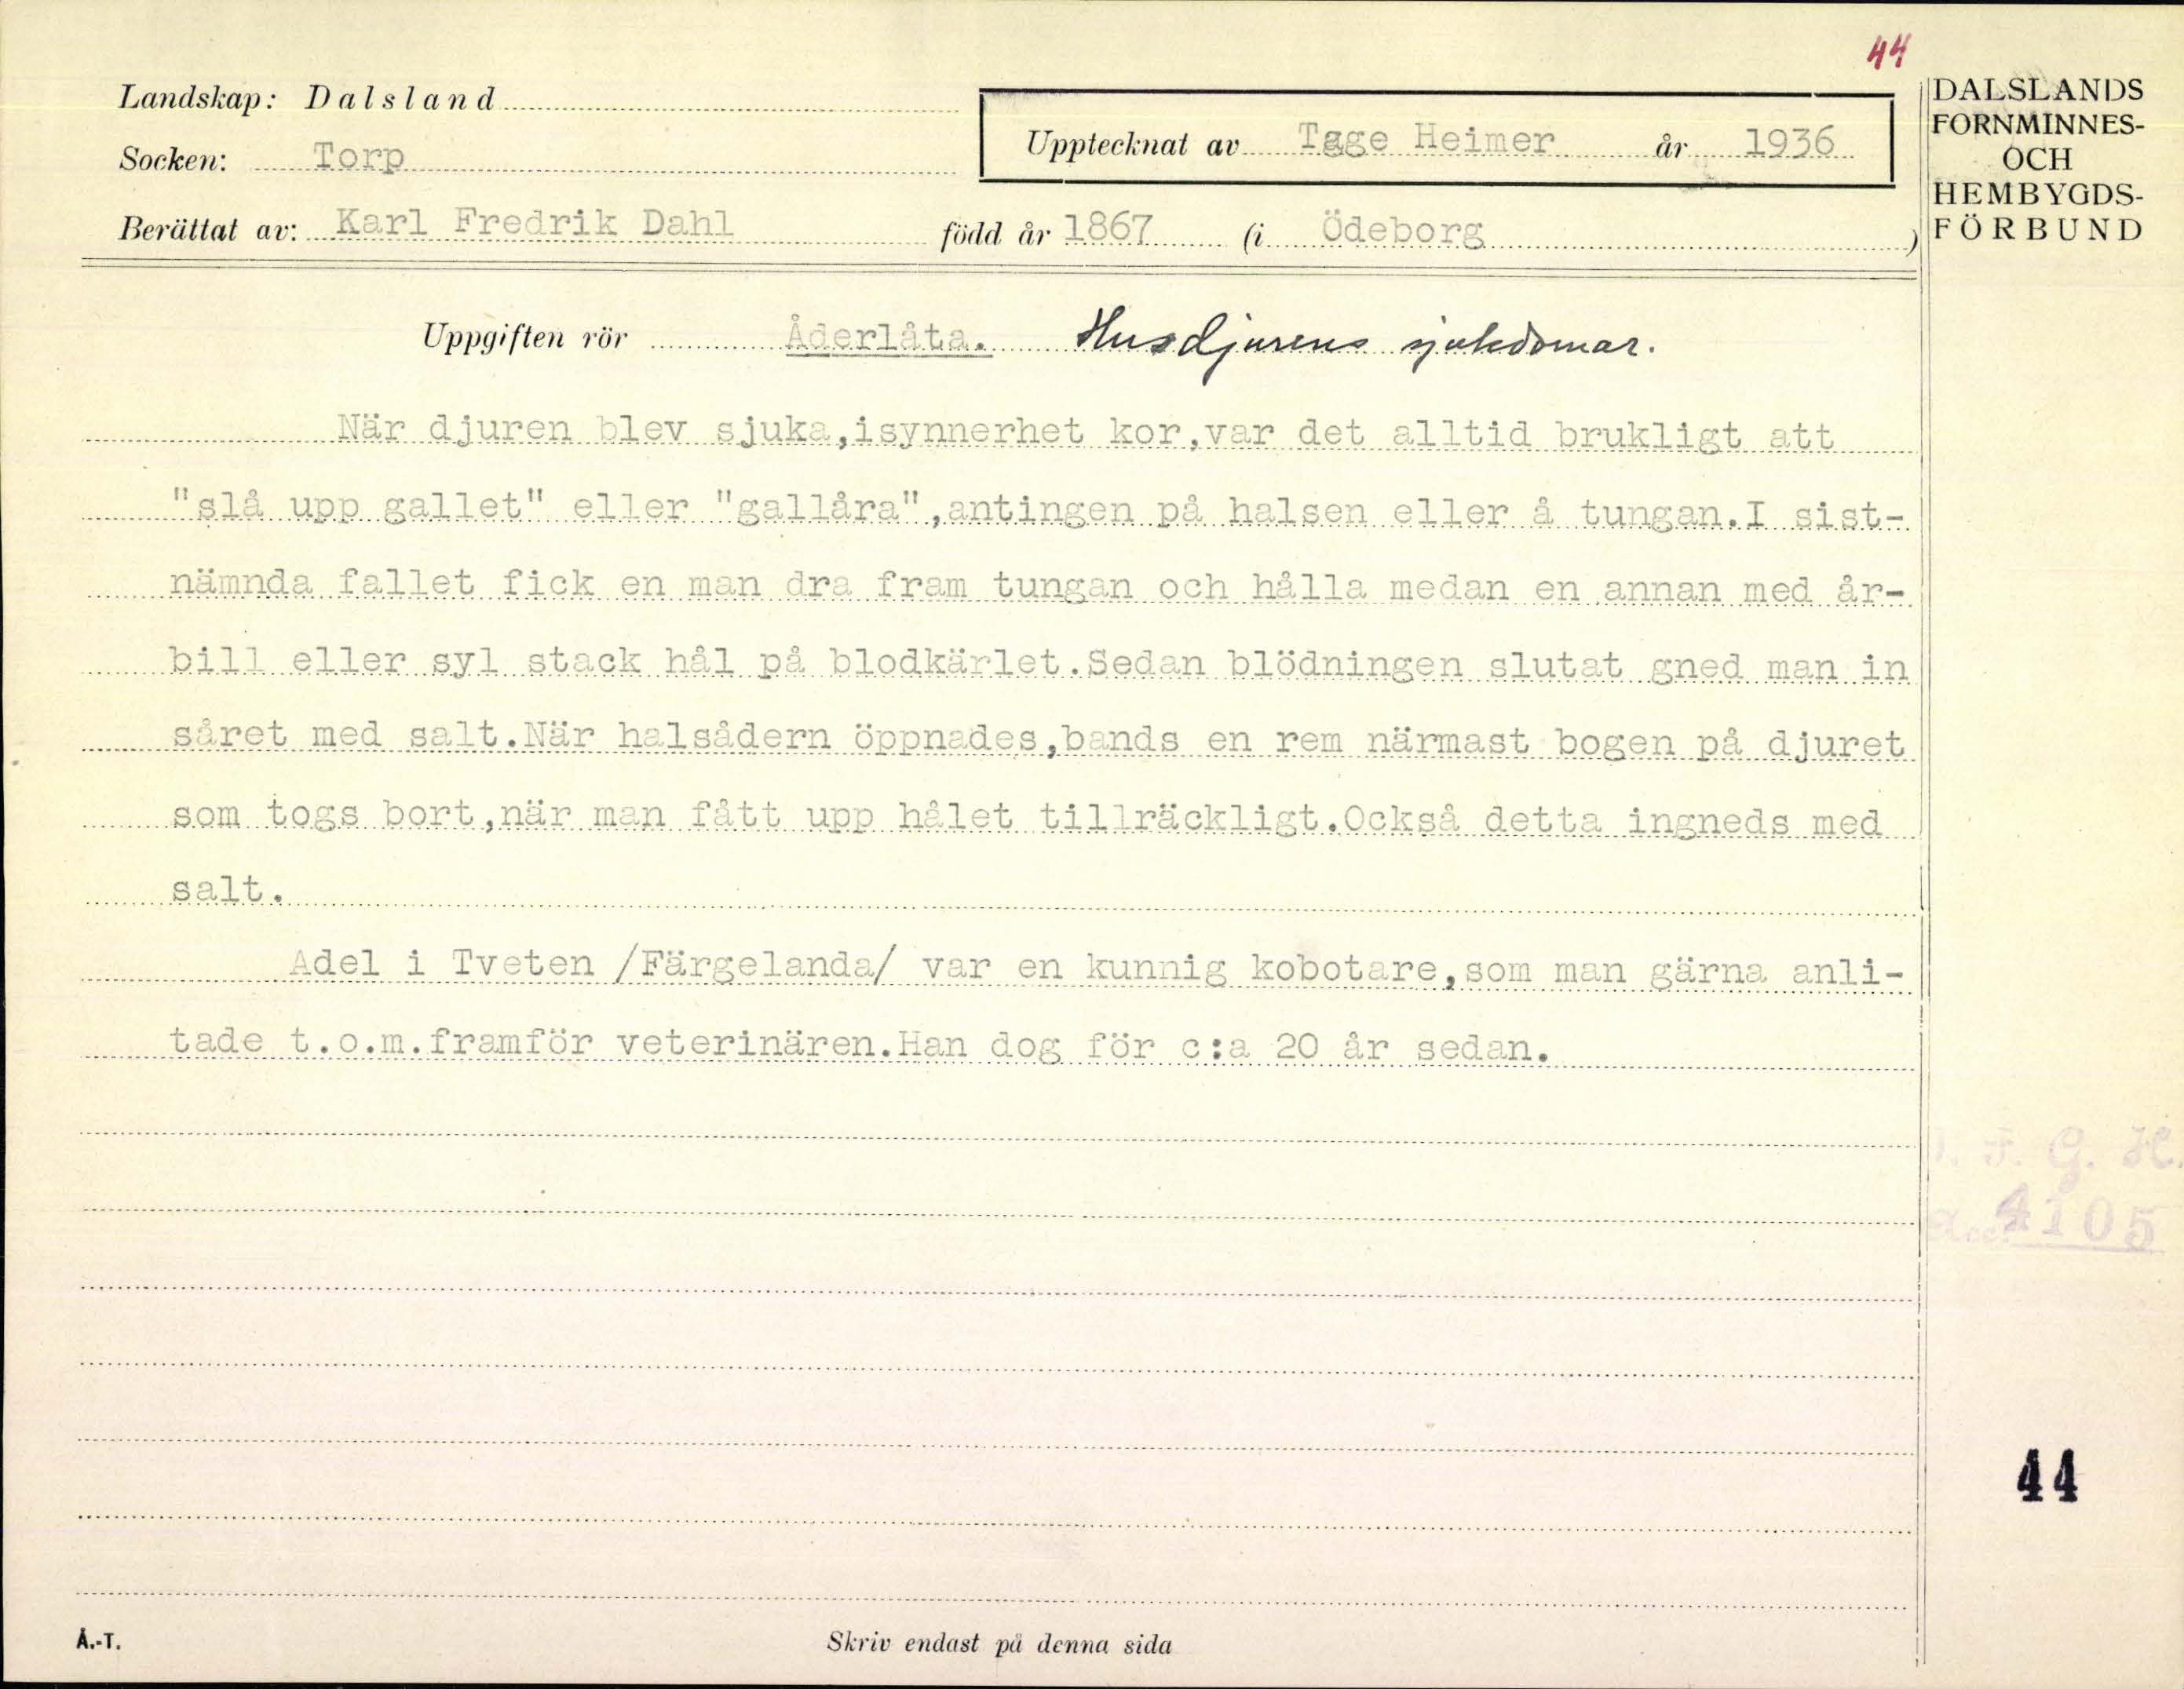 44
Landskap: Dalsland
Socken: Torp
Upptecknat av Tage Heimer år 1936
Berättat av: Karl Fredrik Dahl född år 1867 (i Ödeborg )
DALSLANDS
FORNMINNES-
OCH
HEMBYGDS-
FÖRBUND
Uppgiften rör Åderlåta. Husdjurens sjukdomar.
När djuren blev sjuka,isynnerhet kor,var det alltid brukligt att
"slå upp gallet" eller "gallåra",antingen på halsen eller å tungan.I sist-
nämnda fallet fick en man dra fram tungan och hålla medan en annan med år-
bill eller syl stack hål på blodkärlet.Sedan blödningen slutat gned man in
såret med salt.När halsådern öppnades,bands en rem närmast bogen på djuret
som togs bort,när man fått upp hålet tillräckligt.Också detta ingneds med
salt.
Adel i Tveten /Färgelanda/ var en kunnig kobotare,som man gärna anli-
tade t.o.m.framför veterinären.Han dog för c:a 20 år sedan.
F. G. H.
4105
44
Å.-T.
Skriv endast på denna sida